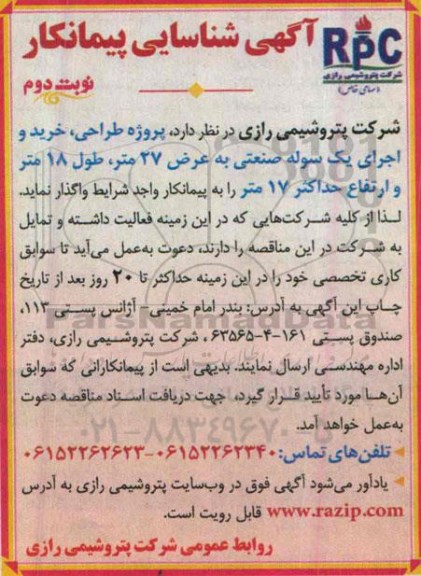 آگهی شناسایی پیمانکار
RPC
شرکت پتروشیمی رازی
(سهامی خاص)
نوبت دوم
شرکت پتروشیمی رازی در نظر دارد، پروژه طراحی، خرید و
اجرای یک سوله صنعتی به عرض ۲۷ متر، طول ۱۸ متر
و ارتفاع حداکثر ۱۷ متر را به پیمانکار واجد شرایط واگذار نماید.
لـذا از کلیه شـرکت‌هایی که در این زمینه فعالیت داشـته و تمایل
به شـرکت در این مناقصه را دارند، دعوت به‌عمل می‌آید تا سوابق
کاری تخصصی خود را در این زمینه حداکثر تا ۲۰ روز بعد از تاریخ
چـاپ این آگهی به آدرس: بندر امام خمینی- آژانس پسـتی ۱۱۳،
صندوق پسـتی ۱۶۱-۴-۶۳۵۶۵ ، شرکت پتروشـیمی رازی، دفتر
اداره مهندسـی ارسال نمایند. بدیهی است از پیمانکارانی که سوابق
آن‌هـا مورد تأیید قـرار گیرد، جهت دریافت اسـناد مناقصه دعوت
به‌عمل خواهد آمد.
تلفن‌های تماس: ۰۶۱۵۲۲۶۲۳۴۰-۰۶۱۵۲۲۶۲۶۲۳
یادآور می‌شود آگهی فوق در وب‌سایت پتروشیمی رازی به آدرس
www.razip.com قابل رویت است.
روابط عمومی شرکت پتروشیمی رازی
ParsNamadData
۰۲۱-۸۸۳۴۹۶۷۰